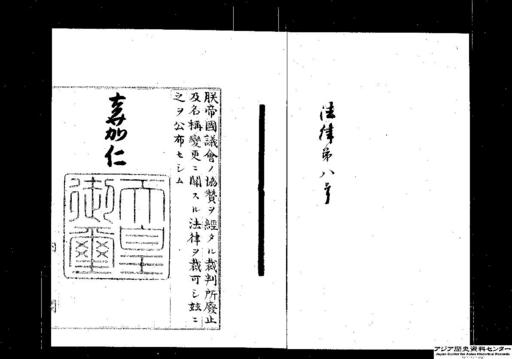 法律第八号
朕帝國議會ノ協贊ヲ經タル裁判所廢止
及名稱變更ニ關スル法律ヲ裁可シ茲ニ
之ヲ公布セシム
嘉仁
天皇
御璽
内閣
アジア歴史資料センター
Japan Center for Asian Historical Records